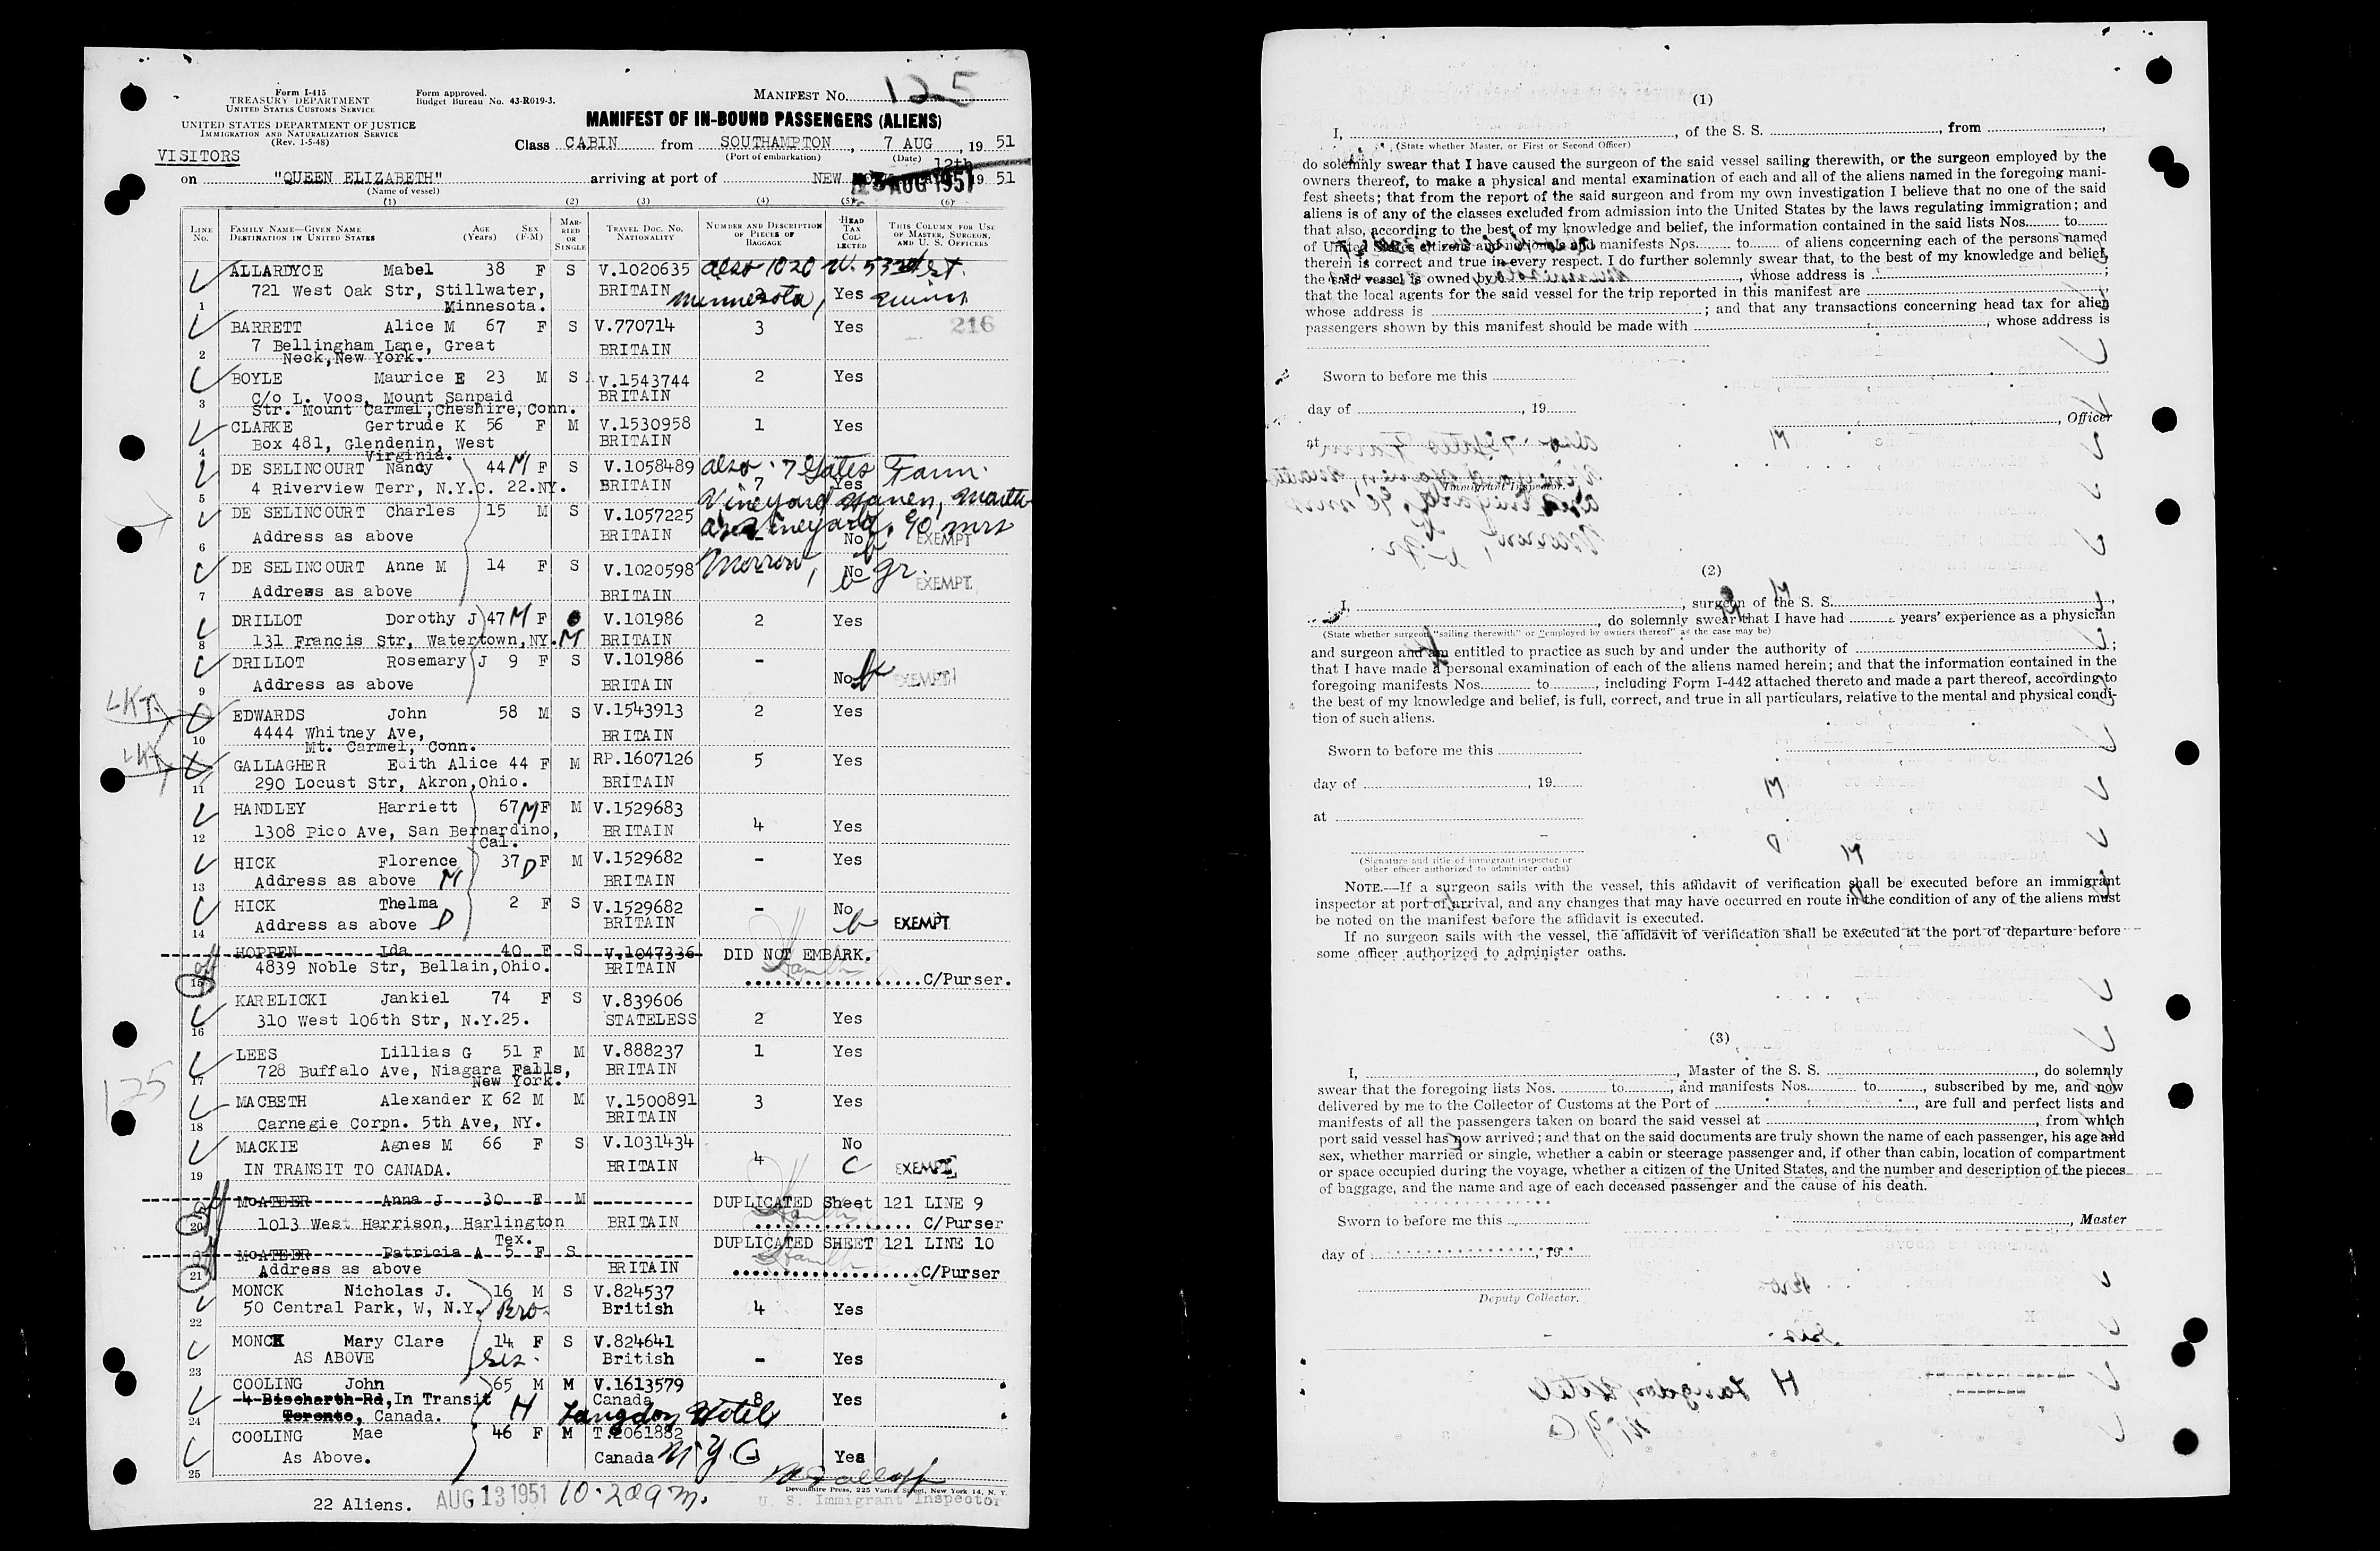 Form I-415
TREASURY DEPARTMENT
UNITED STATES CUSTOMS SERVICE
Form approved.
Budget Bureau No. 43-R019-3.
MANIFEST No. 125
UNITED STATES DEPARTMENT OF JUSTICE
IMMIGRATION AND NATURALIZATION SERVICE
(Rev. 1-5-48)
MANIFEST OF IN-BOUND PASSENGERS (ALIENS)
Class CABIN from SOUTHAMPTON, 7 AUG, 19 51
(Port of embarkation) (Date)
VISITORS
12th
on "QUEEN ELIZABETH" arriving at port of NEW AUG 1951 19 51
(Name of vessel)
(1) (2) (3) (4) (5) (6)
LINE No. FAMILY NAME—GIVEN NAME DESTINATION IN UNITED STATES AGE (Years) SEX (F-M) MARRIED OR SINGLE TRAVEL DOC. NO. NATIONALITY NUMBER AND DESCRIPTION OF PIECES OF BAGGAGE HEAD TAX COLLECTED THIS COLUMN FOR USE OF MASTER, SURGEON, AND U. S. OFFICERS
ALLARDYCE Mabel 38 F S V.1020635 also 1020 W. 53rd St.
721 West Oak Str, Stillwater, BRITAIN Minnesota, Yes
1 Minnesota.
BARRETT Alice M 67 F S V.770714 3 Yes 216
7 Bellingham Lane, Great BRITAIN
2 Neck,New York.
BOYLE Maurice E 23 M S V.1543744 2 Yes
c/o L. Voos, Mount Sanpaid BRITAIN
3 Str. Mount Carmel,Cheshire,Conn.
CLARKE Gertrude K 56 F M V.1530958 1 Yes
Box 481, Glendenin, West BRITAIN
4 Virginia.
DE SELINCOURT Nancy 44 M F S V.1058489 also 7 Gates Farm
4 Riverview Terr, N.Y.C. 22.NY. BRITAIN 7 Yes
5 Vineyard Haven, Martha
DE SELINCOURT Charles 15 M S V.1057225 Vineyard, % Mrs
Address as above BRITAIN No EXEMPT
6
DE SELINCOURT Anne M 14 F S V.1020598 Morrow, No gr. EXEMPT
Address as above BRITAIN
7
DRILLOT Dorothy J 47 M F V.101986 2 Yes
131 Francis Str, Watertown,NY. M BRITAIN
8
DRILLOT Rosemary J 9 F S V.101986 - No EXEMPT
Address as above BRITAIN
9
EDWARDS John 58 M S V.1543913 2 Yes
4444 Whitney Ave, BRITAIN
10 Mt. Carmel, Conn.
GALLAGHER Edith Alice 44 F M RP.1607126 5 Yes
290 Locust Str, Akron,Ohio. BRITAIN
11
HANDLEY Harriett 67 M F M V.1529683
1308 Pico Ave, San Bernardino, BRITAIN 4 Yes
12 Cal.
HICK Florence 37 D F M V.1529682 - Yes
Address as above M BRITAIN
13
HICK Thelma 2 F S V.1529682 - No
Address as above D BRITAIN b EXEMPT
14
HOPPEN Ida 40 F S V.1047336 DID NOT EMBARK.
4839 Noble Str, Bellain,Ohio. BRITAIN
15 C/Purser.
KARELICKI Jankiel 74 F S V.839606
310 West 106th Str, N.Y.25. STATELESS 2 Yes
16
LEES Lillias G 51 F M V.888237 1 Yes
728 Buffalo Ave, Niagara Falls, BRITAIN
17 New York.
125
MACBETH Alexander K 62 M M V.1500891 3 Yes
Carnegie Corpn. 5th Ave, NY. BRITAIN
18
MACKIE Agnes M 66 F S V.1031434 No
IN TRANSIT TO CANADA. BRITAIN 4 C EXEMPT
19
McATEER Anna J 30 F M DUPLICATED Sheet 121 LINE 9
20 1013 West Harrison, Harlington BRITAIN C/Purser
Tex. DUPLICATED SHEET 121 LINE 10
McATEER Patricia A 5 F S
21 Address as above BRITAIN C/Purser
MONCK Nicholas J. 16 M S V.824537
50 Central Park, W, N.Y. Bro British 4 Yes
22
MONCK Mary Clare 14 F S V.824641
AS ABOVE Sis. British - Yes
23
COOLING John 65 M M V.1613579
4 Bischarth Rd,In Transit Canada 8 Yes
24 Toronto, Canada. H Langdon Hotel
COOLING Mae 46 F M T.2061882
As Above. Canada N.Y.C Yes
25
22 Aliens. AUG 13 1951 10.20 am.
Devonshire Press, 225 Varick Street, New York 14, N. Y.
U. S. Immigrant Inspector
(1)
I, , of the S. S. , from ,
(State whether Master, or First or Second Officer)
do solemnly swear that I have caused the surgeon of the said vessel sailing therewith, or the surgeon employed by the
owners thereof, to make a physical and mental examination of each and all of the aliens named in the foregoing mani-
fest sheets; that from the report of the said surgeon and from my own investigation I believe that no one of the said
aliens is of any of the classes excluded from admission into the United States by the laws regulating immigration; and
that also, according to the best of my knowledge and belief, the information contained in the said lists Nos. to
of United States citizens and nationals and manifests Nos. to of aliens concerning each of the persons named
therein is correct and true in every respect. I do further solemnly swear that, to the best of my knowledge and belief,
the said vessel is owned by , whose address is ;
that the local agents for the said vessel for the trip reported in this manifest are
whose address is ; and that any transactions concerning head tax for alien
passengers shown by this manifest should be made with , whose address is
Sworn to before me this
day of , 19
, Officer
at
Immigrant Inspector.
(2)
I, , surgeon of the S. S. ,
, do solemnly swear that I have had years' experience as a physician
(State whether surgeon "sailing therewith" or "employed by owners thereof" as the case may be)
and surgeon and am entitled to practice as such by and under the authority of ;
that I have made a personal examination of each of the aliens named herein; and that the information contained in the
foregoing manifests Nos. to , including Form I-442 attached thereto and made a part thereof, according to
the best of my knowledge and belief, is full, correct, and true in all particulars, relative to the mental and physical condi-
tion of such aliens.
Sworn to before me this
day of , 19
at
(Signature and title of immigrant inspector or
other officer authorized to administer oaths)
NOTE.—If a surgeon sails with the vessel, this affidavit of verification shall be executed before an immigrant
inspector at port of arrival, and any changes that may have occurred en route in the condition of any of the aliens must
be noted on the manifest before the affidavit is executed.
If no surgeon sails with the vessel, the affidavit of verification shall be executed at the port of departure before
some officer authorized to administer oaths.
(3)
I, , Master of the S. S. , do solemnly
swear that the foregoing lists Nos. to , and manifests Nos. to , subscribed by me, and now
delivered by me to the Collector of Customs at the Port of , are full and perfect lists and
manifests of all the passengers taken on board the said vessel at , from which
port said vessel has now arrived; and that on the said documents are truly shown the name of each passenger, his age and
sex, whether married or single, whether a cabin or steerage passenger and, if other than cabin, location of compartment
or space occupied during the voyage, whether a citizen of the United States, and the number and description of the pieces
of baggage, and the name and age of each deceased passenger and the cause of his death.
Sworn to before me this
, Master
day of , 19
Deputy Collector.